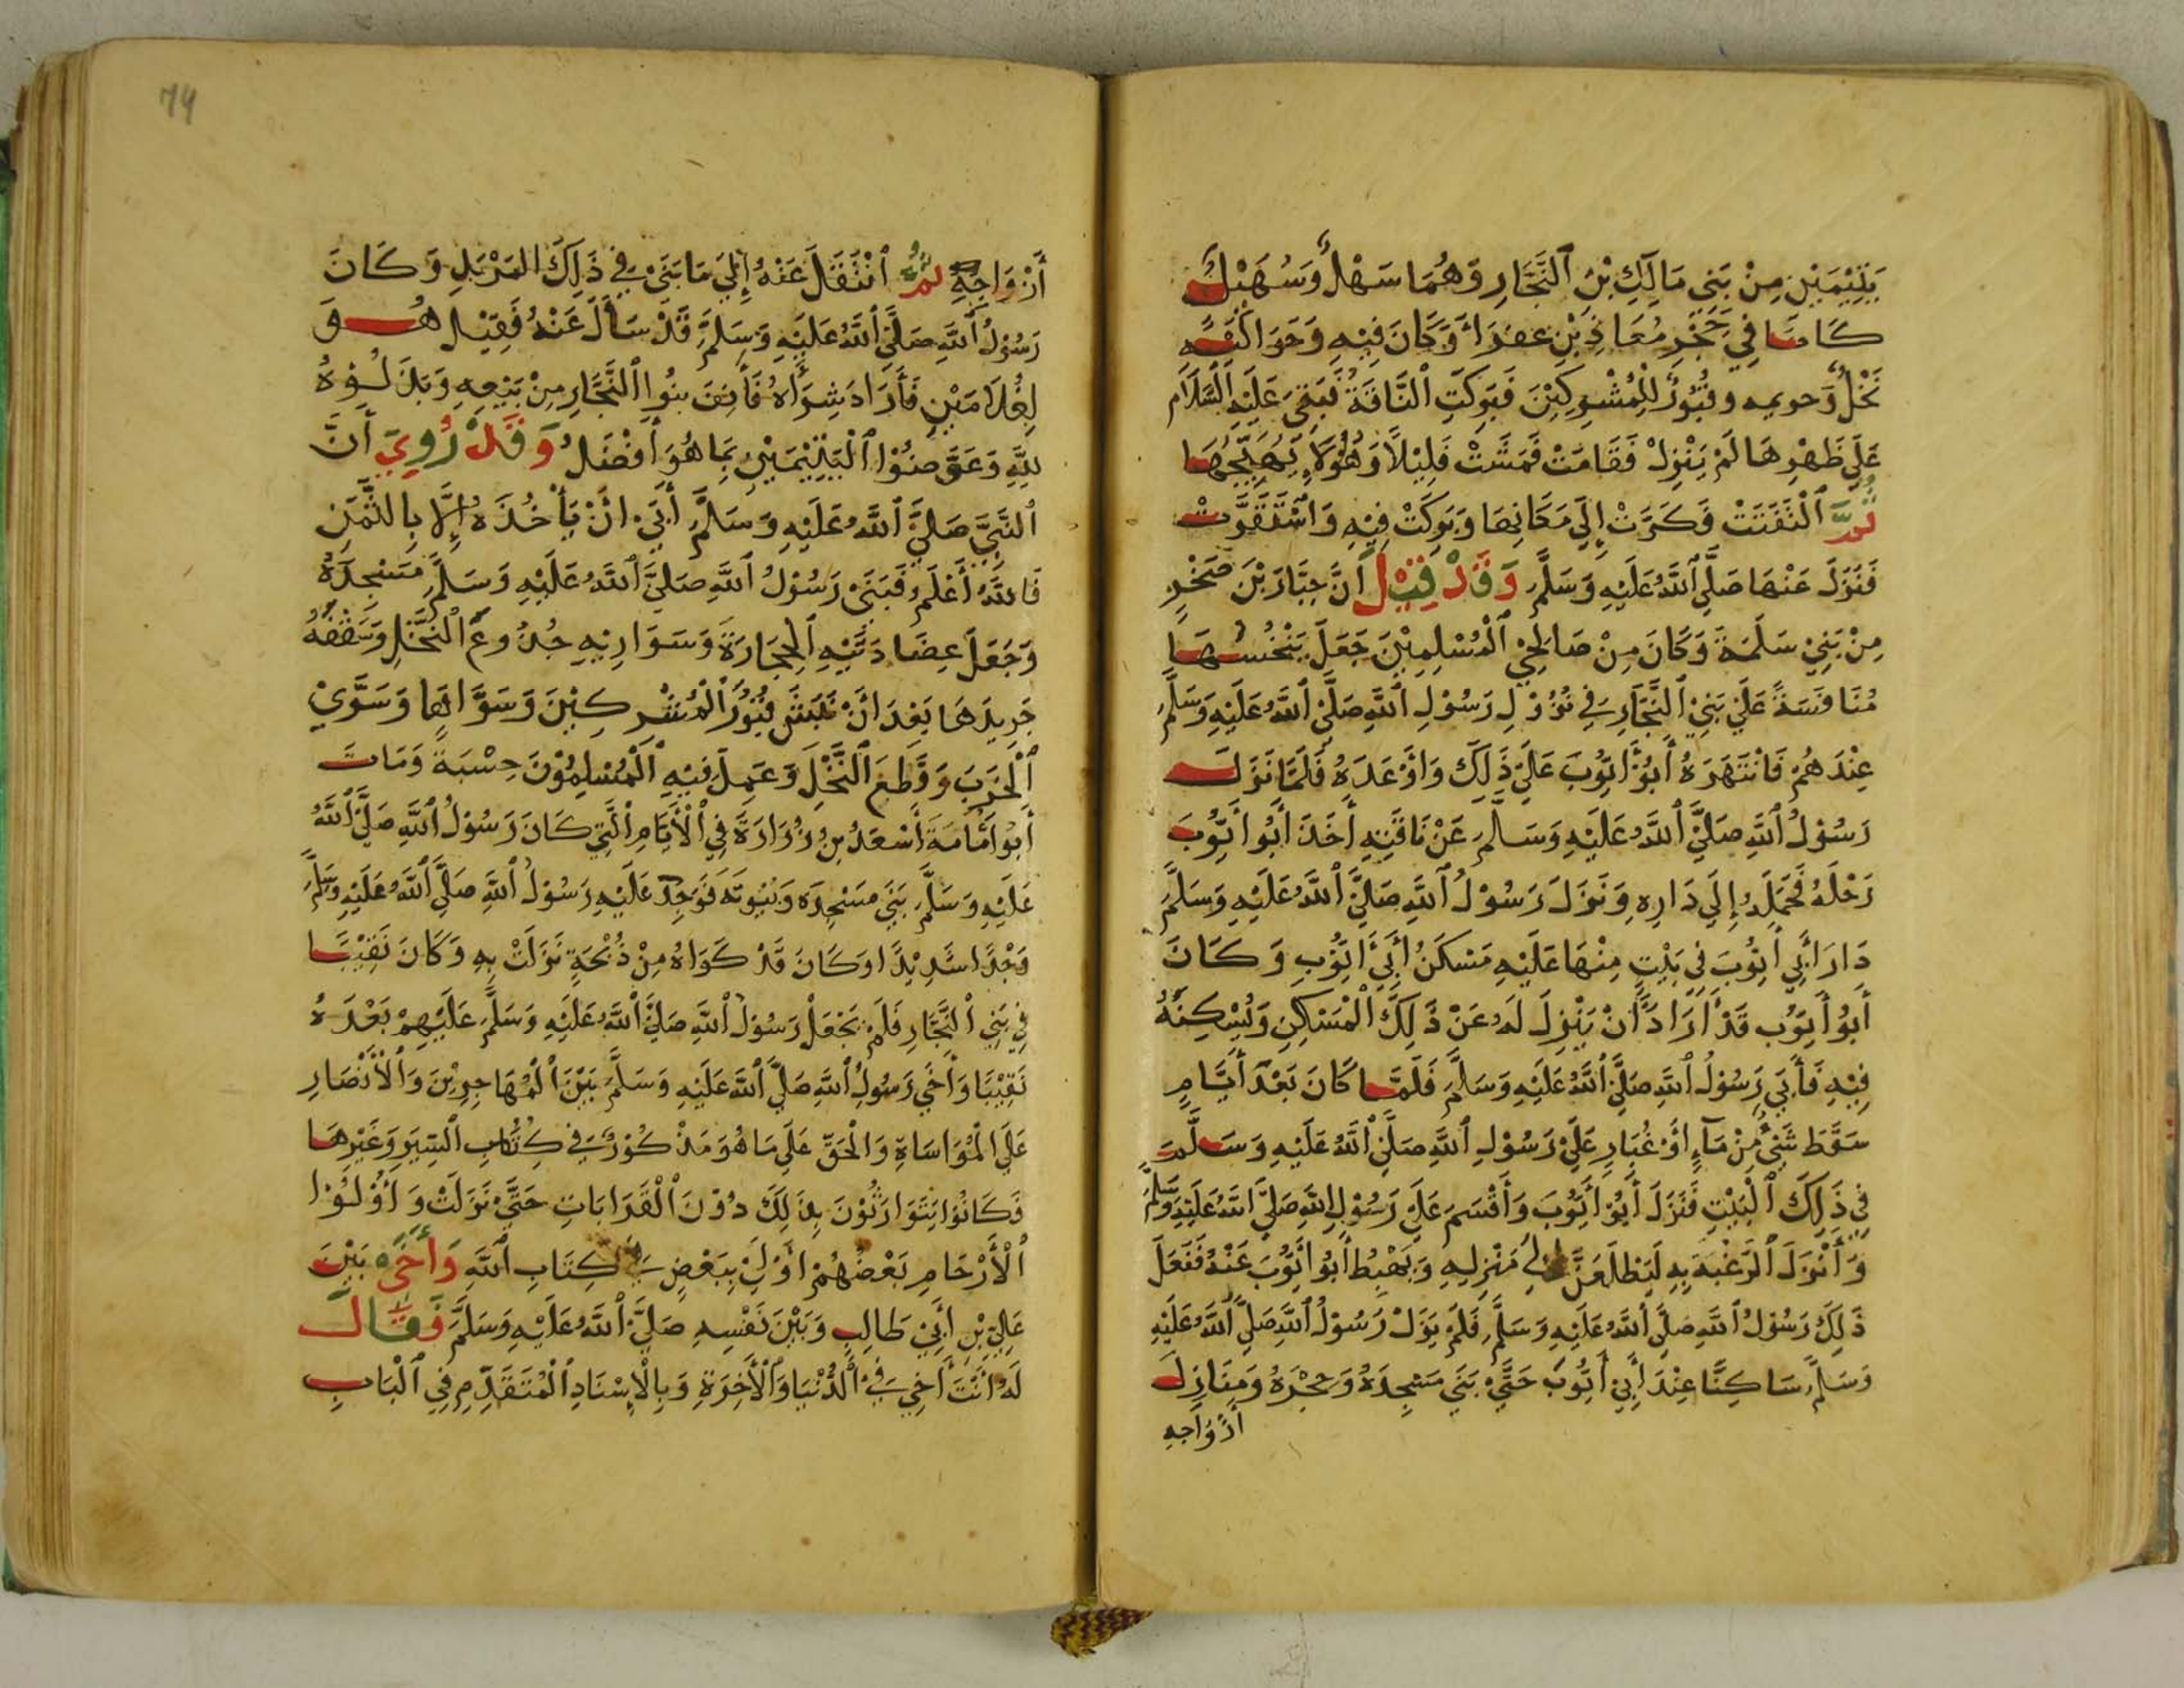 يَتِيْمَيْنِ مِنْ بَنِي مَالِكِ بْنِ ٱلنَّجَّارِ وَهُمَا سَهْلٌ وَسُهَيْلٌ
كَانَا فِي حَجْرِ مُعَاذِ بْنِ عَفْرَاءَ وَكَانَ فِيْهِ وَحَوَالَيْهِ
نَخْلٌ وَقُبُوْرٌ لِلْمُشْرِكِيْنَ فَبَرَكَتِ ٱلنَّاقَةُ فَبَقِيَ عَلَيْهِ ٱلسَّلَام
عَلَى ظَهْرِهَا لَمْ يَنْزِلْ فَقَامَتْ فَمَشَتْ قَلِيْلًا وَهُوَ لَا يُهَيِّجُهَا
ثُمَّ ٱلْتَفَتَتْ فَكَرَّتْ إِلَى مَكَانِهَا وَبَرَكَتْ فِيْهِ وَاسْتَقَرَّتْ
فَنَزَلَ عَنْهَا صَلَّى ٱللَّهُ عَلَيْهِ وَسَلَّمَ وَقَدْ قِيْلَ أَنَّ جَبَّارَ بْنَ صَخْرٍ
مِنْ بَنِيْ سَلَمَةَ وَكَانَ مِنْ صَالِحِيْ ٱلْمُسْلِمِيْنَ جَعَلَ يَنْخُسُهَا
مُنَافَسَةً عَلَى بَنِيْ ٱلنَّجَّارِ فِي نُزُوْلِ رَسُوْلِ ٱللَّهِ صَلَّى ٱللَّهُ عَلَيْهِ وَسَلَّمَ
عِنْدَهُمْ فَانْتَهَرَهُ أَبُوْ أَيُّوْبَ عَلَى ذَلِكَ وَاَوْعَدَهُ فَلَمَّا نَزَلَ
رَسُوْلُ ٱللَّهِ صَلَّى ٱللَّهُ عَلَيْهِ وَسَلَّمَ عَنْ نَاقَتِهِ أَخَذَ أَبُوْ أَيُّوْبَ
رَحْلَهُ فَحَمَلَهُ إِلَى دَارِهِ وَنَزَلَ رَسُوْلُ ٱللَّهِ صَلَّى ٱللَّهُ عَلَيْهِ وَسَلَّمَ
دَارَ أَبِي أَيُّوْبَ فِي بَيْتٍ مِنْهَا عَلَيْهِ مَسْكَنُ أَبِي أَيُّوْبِ وَكَانَ
أَبُوْ أَيُّوْب قَدْ أَرَادَ أَنْ يَنْزِلَ لَهُ عَنْ ذَلِكَ ٱلْمَسْكِنِ وَيُسْكِنَهُ
فِيْهِ فَأَبَى رَسُوْلُ ٱللَّهِ صَلَّى ٱللَّهُ عَلَيْهِ وَسَلَّمَ فَلَمَّا كَانَ بَعْدَ أَيَّامٍ
سَقَطَ شَيْءٌ مِنْ مَآءٍ أَوْ غُبَارٍ عَلَى رَسُوْلِ ٱللَّهِ صَلَّى ٱللَّهُ عَلَيْهِ وَسَلَّمَ
فِي ذَلِكَ ٱلْبَيْتِ فَنَزَلَ أَبُوْ أَيُّوْبَ وَأَقْسَمَ عَلَى رَسُوْلِ اللَّهِ صَلَّى اللَّهُ عَلَيْهِ وَسَلَّمَ
وَأَنْزَلَ ٱلرَّغْبَةَ بِهِ لَيَطْلَعَنَّ إِلَى مَنْزِلِهِ وَيَهْبِطُ أَبُوْ أَيُّوْبَ عَنْهُ فَفَعَلَ
ذَلِكَ رَسُوْلُ ٱللَّهِ صَلَّى ٱللَّهُ عَلَيْهِ وَسَلَّمَ فَلَمْ يَزَلْ رَسُوْلُ ٱللَّهِ صَلَّى ٱللَّهُ عَلَيْهِ
وَسَلَّمَ سَاكِنًا عِنْدَ أَبِي أَيُّوْبَ حَتَّى بَنَى مَسْجِدَهُ وَحُجَرَهُ وَمَنَازِلَ
أَزْوَاجِهِ
74
أَزْوَاجِهِ ثُمَّ ٱنْتَقَلَ عَنْهُ إِلَى مَا بَنَى فِي ذَلِكَ المَرْبَدِ وَكَانَ
رَسُوْلُ ٱللَّهِ صَلَّى ٱللَّهُ عَلَيْهِ وَسَلَّمَ قَدْ سَأَلَ عَنْهُ فَقِيْلَ هُوَ
لِغُلَامَيْنِ فَأَرَادَ شِرَاهُ فَأَنِفَ بَنُوا ٱلنَّجَّارِ مِنْ بَيْعِهِ وَبَذَلُوْهُ
لِلَّهِ وَعَوَّضُوْا ٱلْيَتِيْمَيْنِ بِمَا هُوَ أَفْضَلُ وَقَدْ رُوِيَ أَنَّ
ٱلنَّبِيَّ صَلَّى ٱللَّهُ عَلَيْهِ وَسَلَّمَ أَبَى أَنْ يَأْخُذَهُ إِلَّا بِالثَّمَنِ
فَاللَّهُ أَعْلَمُ فَبَنَى رَسُوْلُ ٱللَّهِ صَلَّى ٱللَّهُ عَلَيْهِ وَسَلَّمَ مَسْجِدَهُ
وَجَعَلَ عِضَادَتَيْهِ ٱلْحِجَارَةَ وَسَوَارِيْهِ جُذُوعَ ٱلنَّخْلِ وَسَقْفَهُ
جَرِيدَهَا بَعْدَ أَنْ نَبَشَ قُبُوْرَ ٱلْمُشْرِكِيْنَ وَسَوَّاهَا وَسَوَّى
ٱلْخَرَبَ وَقَطَعَ ٱلنَّخْلَ وَعَمِلَ فِيْهِ ٱلْمُسْلِمُوْنَ حِسْبَةً وَمَاتَ
أَبُوْ أُمَامَةَ أَسْعَدُ بْنُ زُرَارَةَ فِي ٱلْأَيَّامِ ٱلَّتِي كَانَ رَسُوْلُ ٱللَّهِ صَلَّى ٱللَّهُ
عَلَيْهِ وَسَلَّمَ بَنَى مَسْجِدَهُ وَبُيُوتَهُ فَوَجِدَ عَلَيْهِ رَسُوْلُ ٱللَّهِ صَلَّى ٱللَّهُ عَلَيْهِ وَسَلَّمَ
وَجْدًا شَدِيْدًا وَكَانَ قَدْ كَوَاهُ مِنْ ذُبْحَةٍ نَزَلَتْ بِهِ وَكَانَ نَقِيْبًا
فِي بَنِي ٱلنَّجَّارِ فَلَمْ يَجْعَلْ رَسُوْلُ ٱللَّهِ صَلَّى ٱللَّهُ عَلَيْهِ وَسَلَّمَ عَلَيْهِمْ بَعْدَهُ
نَقِيْبًا وَأَخَى رَسُوْلُ ٱللَّهِ صَلَّى ٱللَّهُ عَلَيْهِ وَسَلَّمَ بَيْنَ ٱلْمُهَاجِرِيْنَ وَٱلْأَنْصَارِ
عَلَى الْمُوَاسَاةِ وَالْحَقِّ عَلَى مَا هُوَ مَذْكُوْرٌ فِي كِتَابِ ٱلسِّيَرِ وَغَيْرِهَا
فَكَانُوْا يَتَوَارَثُوْنَ بِذَلِكَ دُوْنَ ٱلْقَرَابَاتِ حَتَّى نَزَلَتْ وَأُوْلُوْا
ٱلْأَرْحَامِ بَعْضُهُمْ أَوْلَى بِبَعْضٍ فِي كِتَابِ ٱللَّهِ وَأَخَى بَيْنَ
عَلِيِّ بْنِ أَبِيْ طَالِبٍ وَبَيْنَ نَفْسِهِ صَلَّى ٱللَّهُ عَلَيْهِ وَسَلَّمَ فَقَالَ
لَهُ أَنْتَ أَخِي فِي ٱلدُّنْيَا وَٱلْأَخِرَةِ وَبِالْإِسْنَادِ ٱلْمُتَقَدِّمِ فِي ٱلْبَابِ